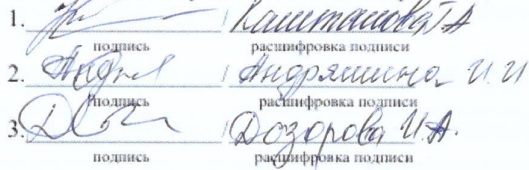 1. / Каштанова Г А
подпись расшифровка подписи
2. Андр / Андряшина И. И
подпись расшифровка подписи
3. / Дозорова И. А.
подпись расшифровка подписи